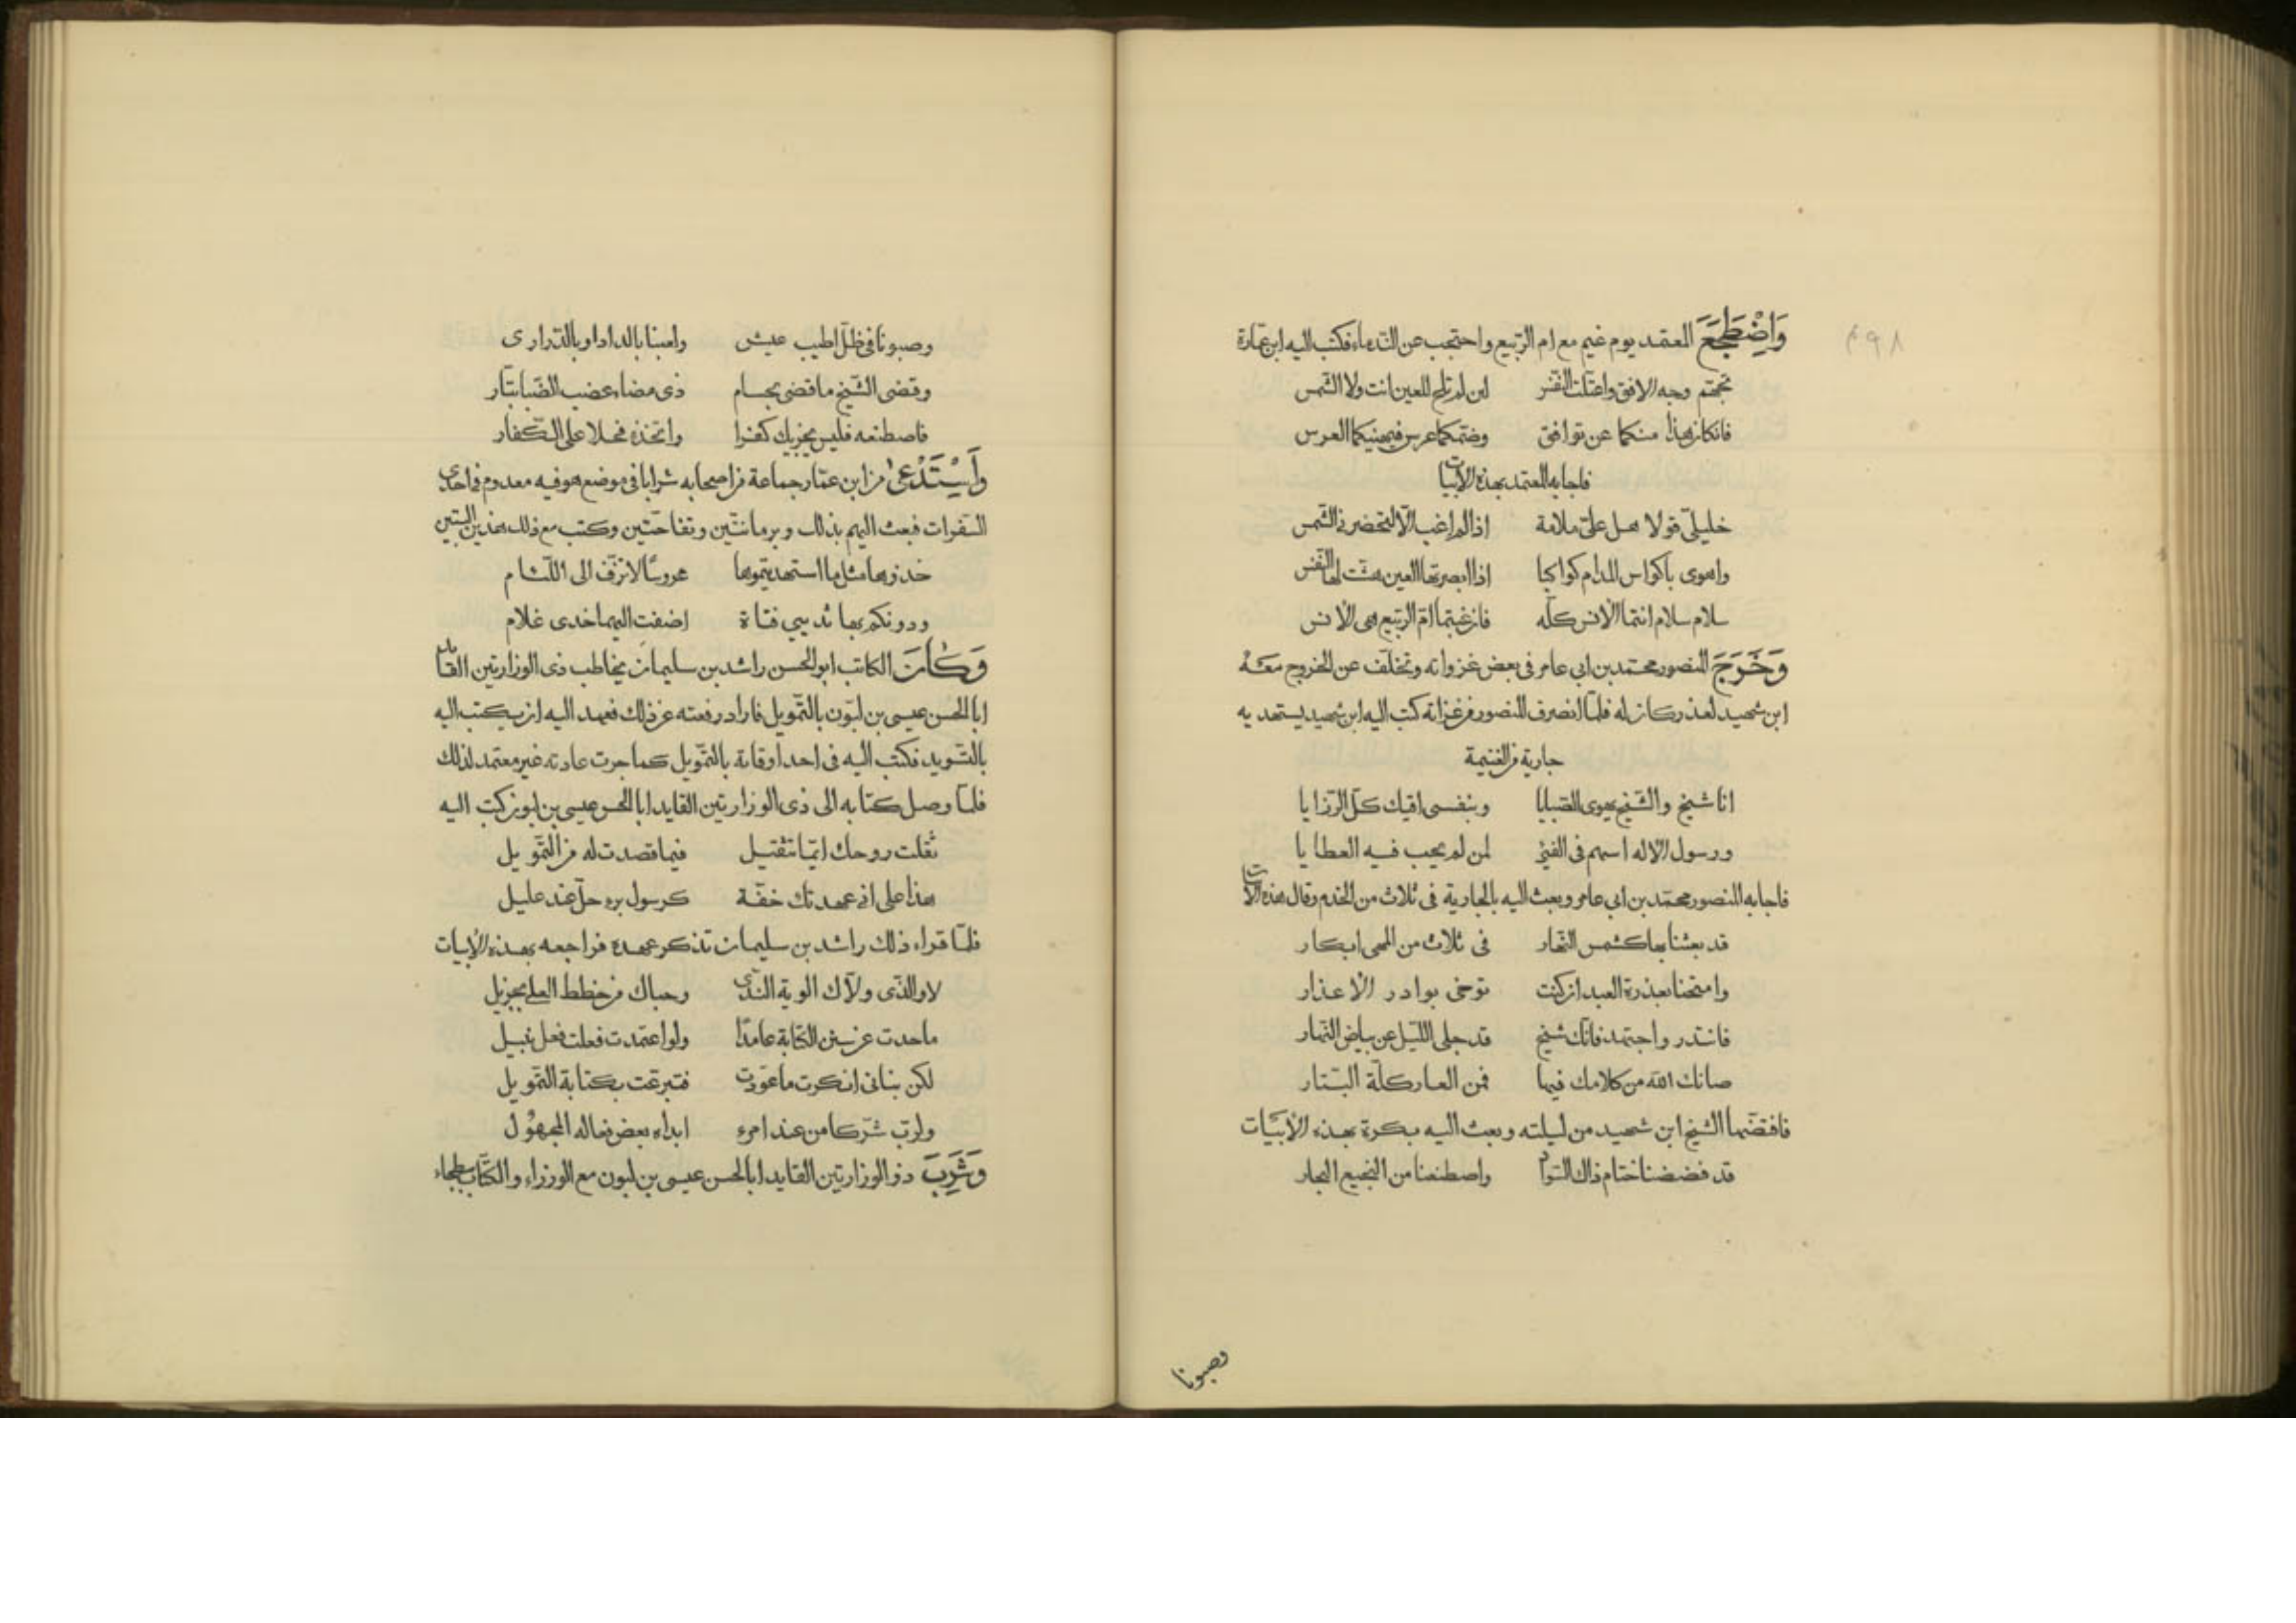 ٤٩٨
وَاضْطَجَعَ المعتمد يوم غيم مع ام الربيع واحتجب عن الندماء فكتب اليه ابن عمارة
تجهم وجه الافق واعتلت النفس لئن لم تلح للعين انت ولا الشمس
فان كان هذا منكما عن توافق وضمكما عرس فيهنيكما العرس
فاجابه المعتمد بهذه الابيات
خليلي قولا هل علي ملامة اذا لم اغب الا لتحضر في الشمس
واهوى باكواس المدام كواكبا اذا ابصرتها العين هشت لها النفس
سلام سلام انتما الانس كله فان غبتما ام الربيع هي الانس
وَخَرَجَ المنصور محمد بن ابي عامر في بعض غزواته وتخلف عن الخروج معه
ابن شهيد لعذر كان له فلما انصرف المنصور من غزاته كتب اليه ابن شهيد يستهديه
جارية من الغنيمة
انا شيخ والشيخ يهوى الصبايا وبنفسى اقيك كل الرزايا
ورسول الاله اسهم فى الفئ لمن لم يجب فيه العطايا
فاجابه المنصور محمد بن ابي عامر وبعث اليه بالجارية فى ثلاث من الخدم وقال هذه الابيات
قد بعثنا بها كشمس النهار فى ثلاث من المهى ابكار
وامتحنا بعذرة العبد ان كنت توخى بوادر الاعذار
فاتئدر واجتهد فانك شيخ قد جلى الليل عن بياض النهار
صانك الله من كلامك فيها فمن العار كلة البتار
فافتضها الشيخ ابن شهيد من ليلته وبعث اليه بكرة بهذه الابيات
قد فضضنا ختام ذاك السوار واصطنعنا من النجيع الجار
وصبونا
وصبونا فى ظل اطيب عيش ولعبنا بالدادا وبالدرارى
وقضى الشيخ ما قضى بحسام ذى مضاء عضب الضبا بتار
فاصطنعه فليس يجزيك كفرا واتخذه فحلا على الكفار
وَاَسْتَدْعَى من ابن عمار جماعة من اصحابه شرابا فى موضع هو فيه معدوم فى احدى
السفرات فبعث اليهم بذلك وبرمانتين وتفاحتين وكتب مع ذلك هذين البيتين
خذوها مثل ما استهديتموها عروسًا لا تزف الى اللئام
ودونكم بها ثديي فتاة اضفت اليهما خدى غلام
وَكَانَ الكاتب ابو الحسن راشد بن سليمان يخاطب ذى الوزارتين القائد
ابا الحسن عيسى بن لبون بالتمويل فاراد رفعته عن ذلك فعهد اليه ان يكتب اليه
بالتسويد فكتب اليه فى احد اوقاته بالتمويل كما جرت عادته غير معتمد لذلك
فلما وصل كتابه الى ذى الوزارتين القايد ابا الحسن عيسى بن لبون كتب اليه
ثقلت روحك ايما تثقيل فيما قصدت له من التمويل
هذا على انى عهدتك خفة كرسول برء حل عند عليل
فلما قراء ذلك راشد بن سليمان تذكر عهده فراجعه بهذه الابيات
لا والذى ولاك الوية الندى وحباك من خطط العلى بجزيل
ما حدت عن سنن الكتابة عامدا ولو اعتمدت فعلت فعل نبيل
لكن بنانى انكرت ما عودت فتبرعت بكتابة التمويل
ولرب شر كامن عند امرء ابداه بعض فعاله المجهول
وَشَرِبَ ذو الوزارتين القايد ابا الحسن عيسى بن لبون مع الوزراء والكتاب ببطحاء